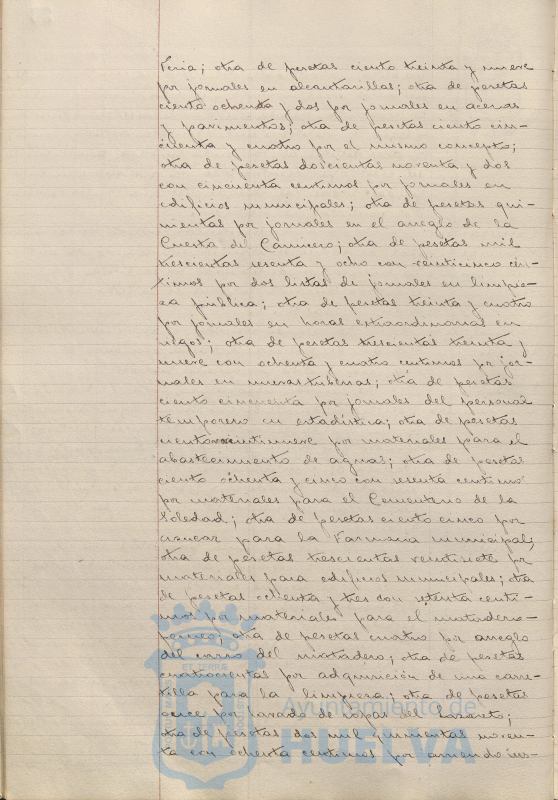 Feria; otra de pesetas ciento treinta y nueve
por jornales en alcantarillas; otra de pesetas
ciento ochenta y dos por jornales en aceras
y pavimentos; otra de pesetas ciento cin-
cuenta y cuatro por el mismo concepto;
otra de pesetas doscientas noventa y dos
con cincuenta centimos por jornales en
edificios municipales; otra de pesetas qui-
nientas por jornales en el arreglo de la
Cuesta del Carnicero; otra de pesetas mil
trescientas sesenta y ocho con veinticinco cen-
timos por dos listas de jornales en limpie-
za pública; otra de pesetas treinta y cuatro
por jornales en horas extraordinarias en
riegos; otra de pesetas trescientas treinta y
nueve con ochenta y cuatro centimos por jor-
nales en nuevas tuberias; otra de pesetas
ciento cincuenta por jornales del personal
temporero en estadística; otra de pesetas
ciento veintinueve por materiales para el
abastecimiento de aguas; otra de pesetas
ciento ochenta y cinco con sesenta centimos
por materiales para el Cementerio de la
Soledad; otra de pesetas ciento cinco por
azucar para la Farmacia municipal;
otra de pesetas trescientas veintisiete por
materiales para edificios municipales; otra
de pesetas ochenta y tres con setenta centi-
mos por materiales para el matadero
otra de pesetas cuatro por arreglo
del carro del matadero; otra de pesetas
cuatrocientas por adquisición de una carre-
tilla para la limpieza; otra de pesetas
once por lavado de ropas del Lazareto;
otra de pesetas dos mil quinientas noven-
ta con ochenta centimos por arriendo
ET TERRÆ
Ayuntamiento de
HUELVA